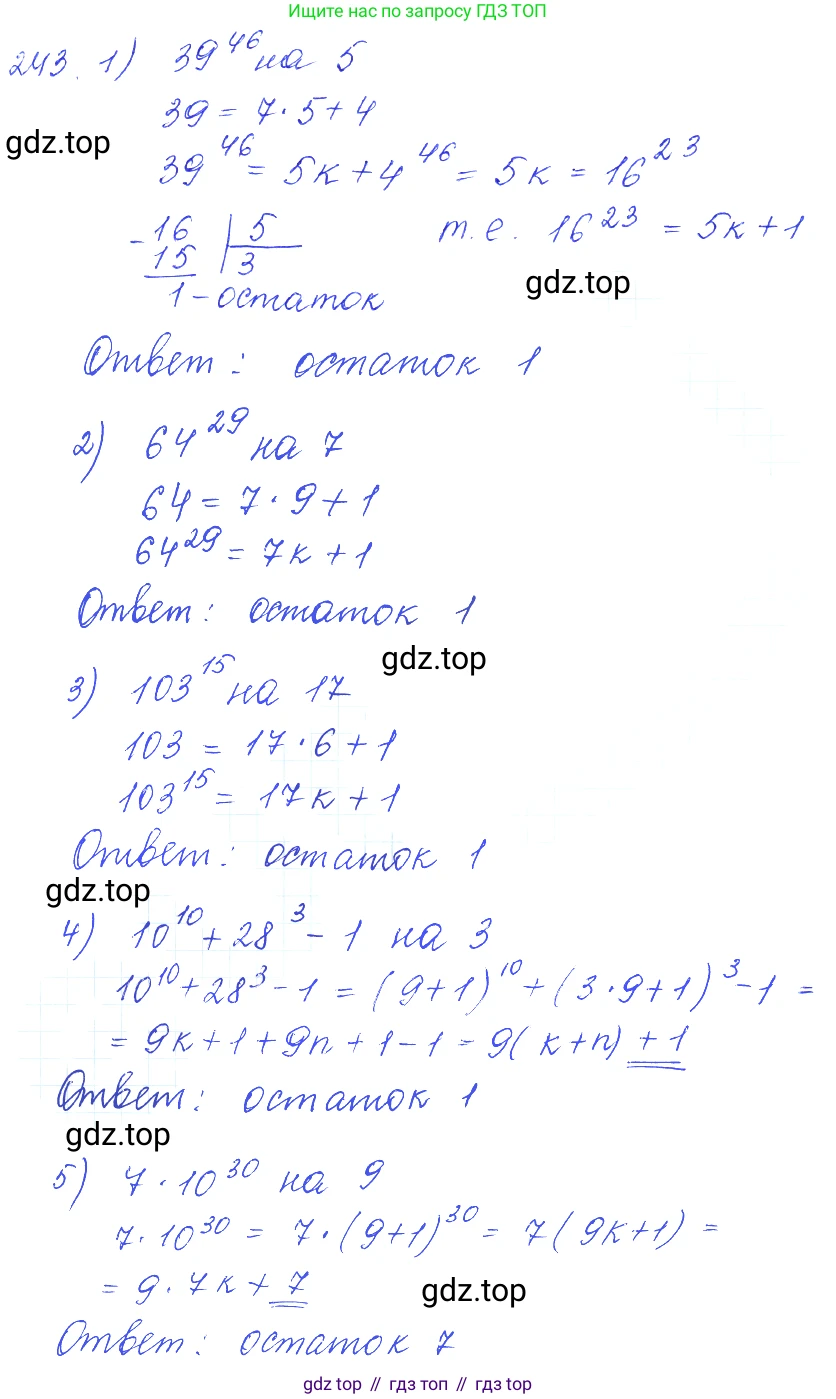 Ищите нас по запросу ГДЗ ТОП
243. 1) 39^46 на 5
39 = 7·5+4
gdz.top
39^46 = 5к + 4^46 = 5к = 16^23
-16 | 5 т.е. 16^23 = 5к+1
15 | 3
gdz.top
1 - остаток
Ответ: остаток 1
2) 64^29 на 7
64 = 7·9+1
64^29 = 7к+1
Ответ: остаток 1
gdz.top
3) 103^15 на 17
103 = 17·6+1
103^15 = 17к+1
Ответ: остаток 1
gdz.top
4) 10^10 + 28^3 - 1 на 3
10^10 + 28^3 - 1 = (9+1)^10 + (3·9+1)^3 - 1 =
= 9к+1+9n+1-1 = 9(к+n) + 1
Ответ: остаток 1
gdz.top
5) 7·10^30 на 9
7·10^30 = 7·(9+1)^30 = 7(9к+1) =
= 9·7к + 7
gdz.top
Ответ: остаток 7
gdz.top // гдз топ // гдз.top